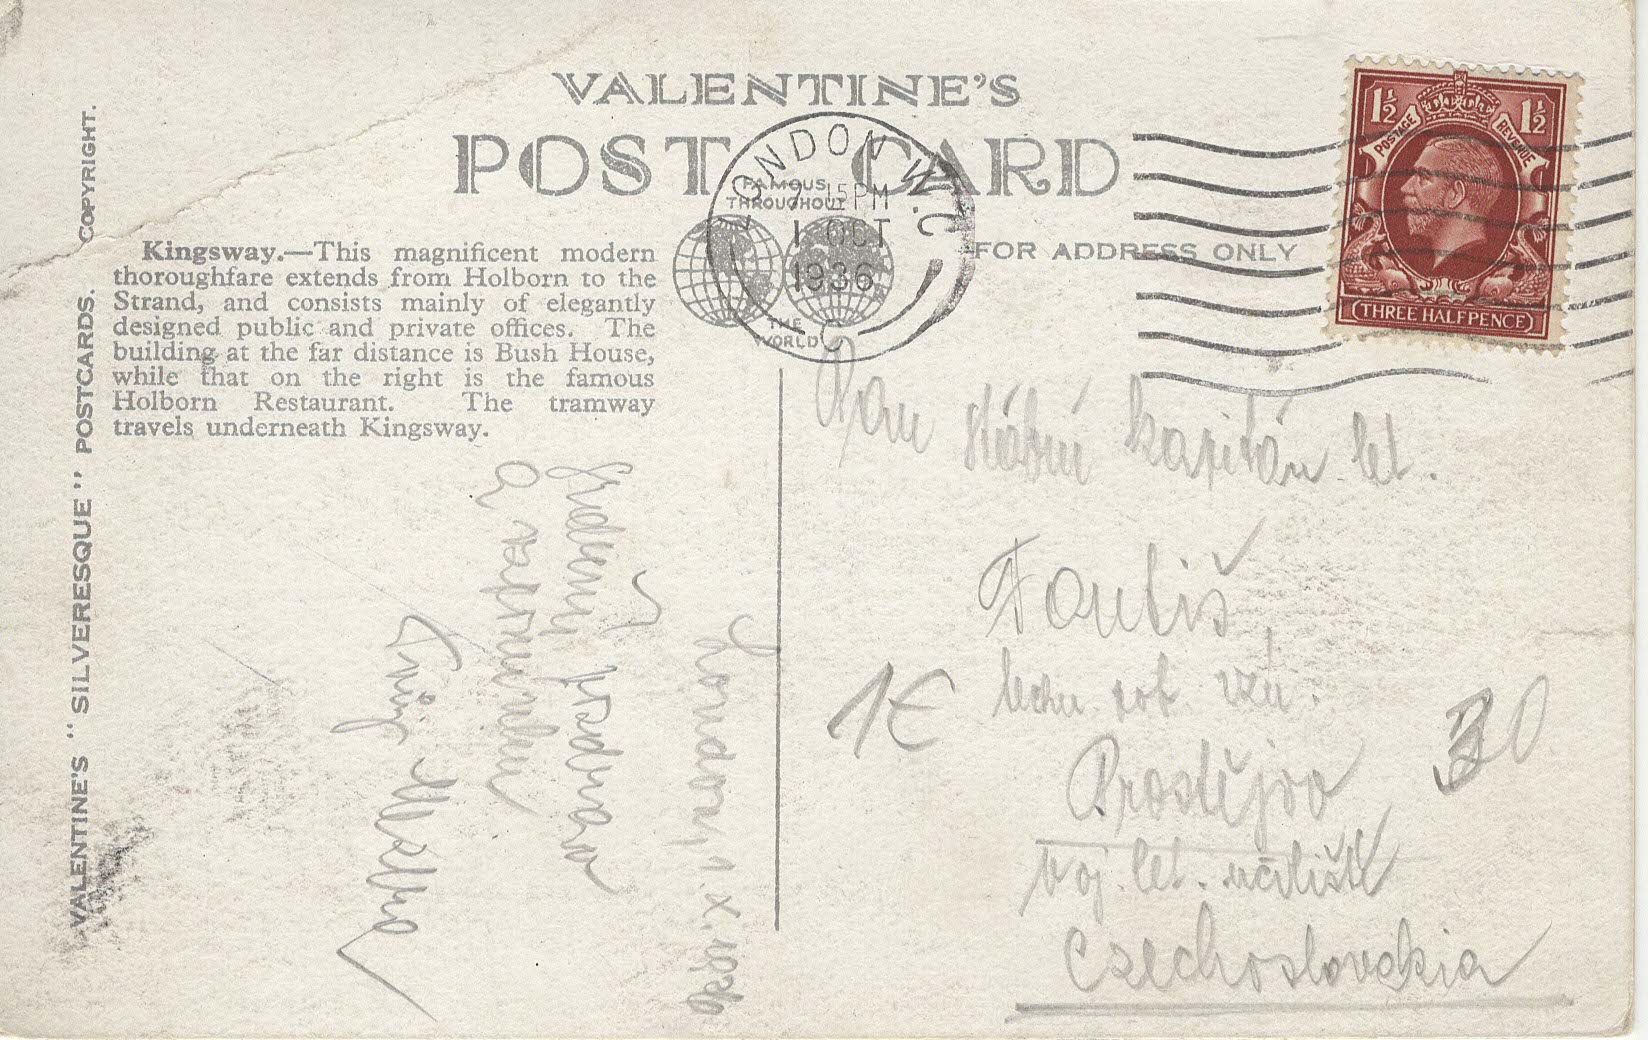 VALENTINE'S
POST CARD
FAMOUS
THROUGHOUT
THE
WORLD
FOR ADDRESS ONLY
LONDON. W.C.
15 PM
1 OCT
1936
1½ 1½
POSTAGE REVENUE
THREE HALFPENCE
VALENTINE'S "SILVERESQUE" POSTCARDS. COPYRIGHT.
Kingsway.—This magnificent modern
thoroughfare extends from Holborn to the
Strand, and consists mainly of elegantly
designed public and private offices. The
building at the far distance is Bush House,
while that on the right is the famous
Holborn Restaurant. The tramway
travels underneath Kingsway.
London, 1. X. 1936
Srdečný pozdrav
a vzpomínku
Pan štábní kapitán let.
Doubiš,
1€
30
Prostějov
voj. let. učiliště
Czechoslovakia